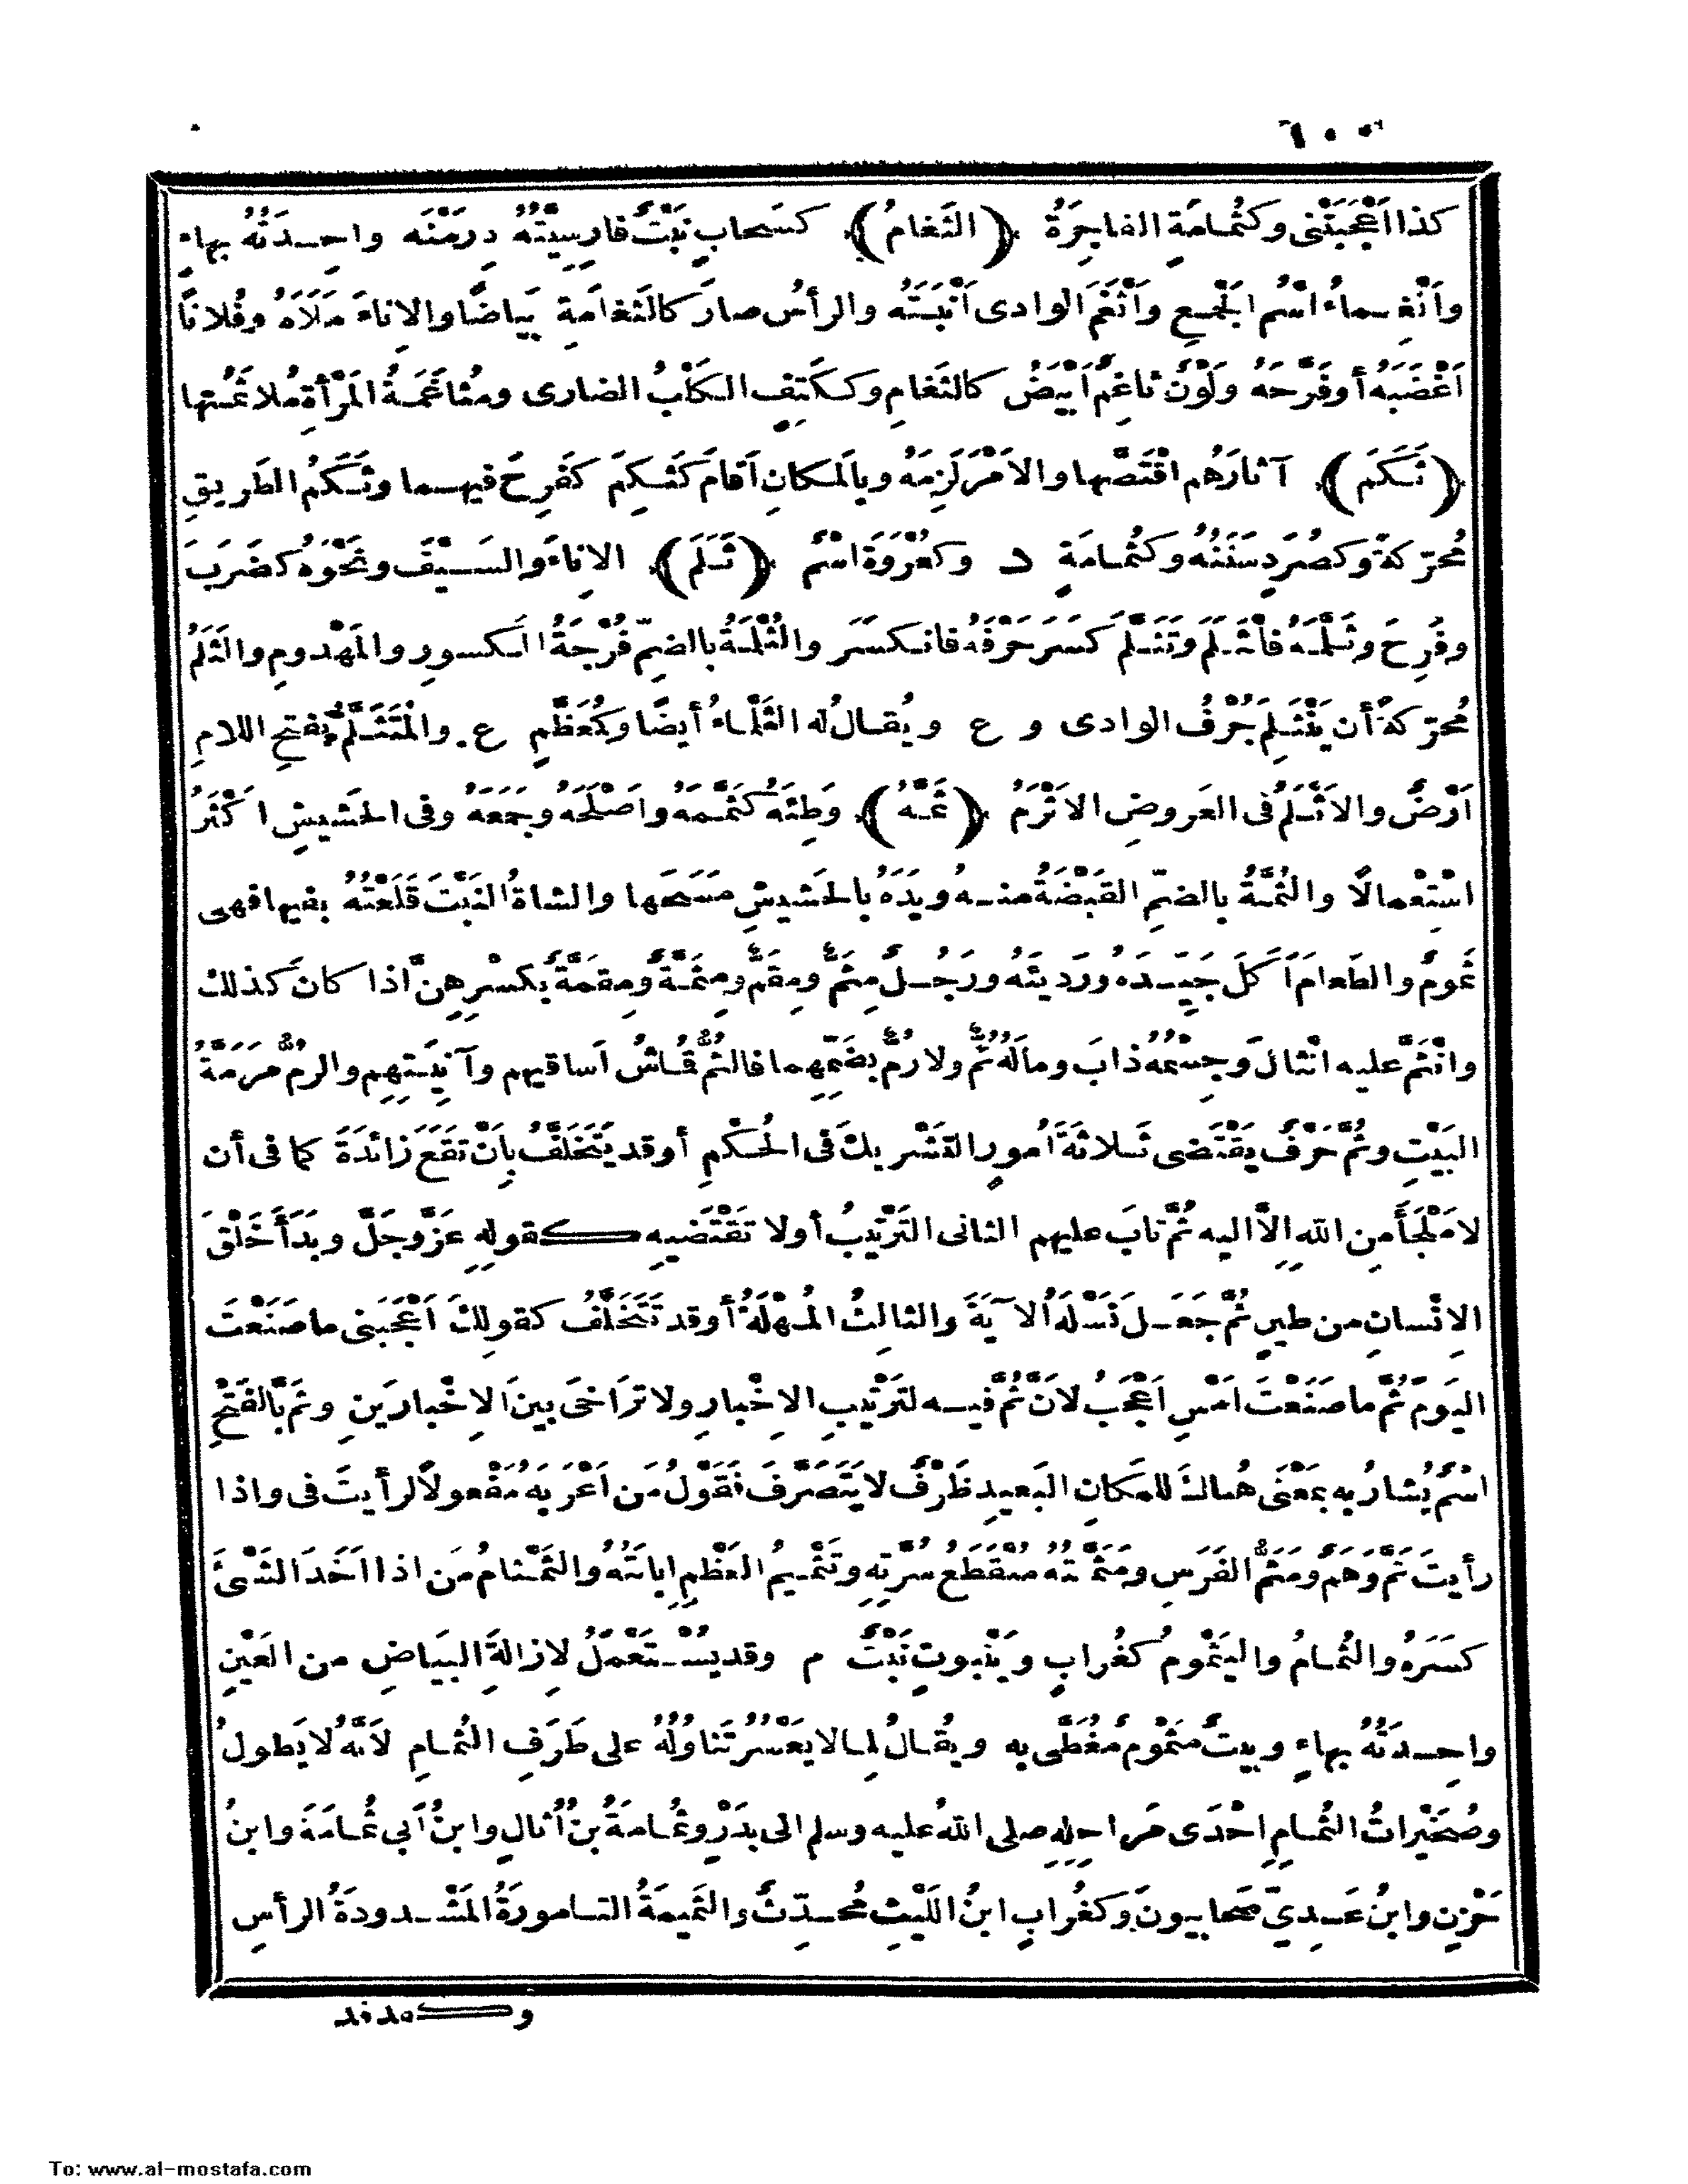 ٦٠٠
كذا أَعْجَبَتْنى وكثُمامَةٍ الفاجِرَةُ ﴿الثَغامُ﴾ كسَحابٍ نَبْتٌ فارِسِيَّتُهُ دِرَمَنَه واحِدَتُهُ بهاءٍ
وأَثْغِماءُ اسْمُ الجَمْعِ وأَثْغَمَ الوادى أَنْبَتَه والرأسُ صارَ كالثَغامَةِ بَياضًا والاِناءَ مَلَأَهُ وفُلانًا
أَغْضَبَهُ أو فَرَّحَهُ ولَوْنٌ ثاغِمٌ أَبْيَضُ كالثَغامِ وككَتِفٍ الكَلْبُ الضارى ومُثاغَمَةُ المَرْأةِ مُلاثَمَتُها
﴿ثَكَمَ﴾ آثارَهُم اقْتَصَّها والاَمْرَ لَزِمَهُ وبالمَكانِ أَقامَ كثَكِمَ كفَرِحَ فيهما وثَكَمُ الطَريقِ
مُحرّكةً وكصُرَدٍ سَنَنُهُ وكثُمامَةٍ د وكعُرْوَةَ اسْمٌ ﴿ثَلَمَ﴾ الاِناءَ والسَيْفَ ونَحْوَهُ كضَرَبَ
وفَرِحَ وثَلَّمَهُ فانْثَلَمَ وتَثَلَّمَ كَسَرَ حَرْفَهُ فانكَسَرَ والثُلْمَةُ بالضمِّ فُرْجَةُ المكسورِ والمَهْدومِ والثَلَمُ
مُحرّكةً أن يَنْثَلِمَ جُرْفُ الوادى و ع ويُقالُ له الثَلْماءُ أيضًا وكمُعَظَّمٍ ع والمُتَثَلَّمُ بفتحِ اللامِ
أَرْضٌ والاَثْلَمُ فى العَروضِ الاَثْرَمُ ﴿ثَمَّهُ﴾ وَطِئَهُ كثَمَّمَهُ وأَصْلَحَهُ وجَمَعَهُ وفى الحَشيشِ اَكْثَرُ
اسْتِعْمالًا والثُمَّةُ بالضمِّ القَبْضَةُ منه ويَدَهُ بالحَشيشِ مَسَحَها والشاةُ النَبْتَ قَلَعَتْهُ بفيها فهى
ثَمومٌ والطَعامَ أَكَلَ جَيِّدَهُ ورَديئَهُ ورَجُلٌ مِثَمٌّ ومِقَمٌّ ومِثَمَّةٌ ومِقَمَّةٌ بكسْرِهِنَّ اذا كانَ كذلك
وانْثَمَّ عليه انْثالَ وجِسْمُهُ ذابَ ومالَهُ ثُمٌّ ولا رُمٌّ بضَمِّهِما فالثُمُّ قُماشُ أَساقيهِم وآنِيَتِهِم والرُمُّ مَرَمَّةُ
البَيْتِ وثُمَّ حَرْفٌ يَقْتَضى ثَلاثَةَ أُمورٍ التَشْريكَ فى الحُكْمِ أو قد يَتَخَلَّفُ بِأَنْ تَقَعَ زائدَةً كما فى أن
لا مَلْجَأَ مِن اللهِ اِلّا اليه ثُمَّ تابَ عليهم الثانى التَرْتيبُ أو لا تَقْتَضيهِ كقولهِ عَزَّ وجَلَّ وبَدَأَ خَلْقَ
الاِنْسانِ من طينٍ ثُمَّ جَعَلَ نَسْلَهُ الآيَةَ والثالِثُ المُهْلَةُ أو قد تَتَخَلَّفُ كقولِكَ أَعْجَبَنى ما صَنَعْتَ
اليَوْمَ ثُمَّ ما صَنَعْتَ أَمْسِ أَعْجَبُ لاَنَّ ثُمَّ فيه لتَرْتيبِ الاِخْبارِ ولا تَراخِىَ بينَ الاِخْبارَينِ وثَمَّ بالفَتْحِ
اسْمٌ يُشارُ به بمَعْنَى هُناكَ للمكانِ البَعيدِ ظَرْفٌ لا يَتَصَرَّفُ فقَوْلُ مَن أَعْرَبَهُ مَفْعولًا لرأيتَ فى واذا
رأيتَ ثَمَّ وَهَمٌ ومَثَمُّ الفَرَسِ ومَثَمَّتُهُ مُنْقَطَعُ سُرَّتِهِ وتَثْميمُ العَظْمِ اِبانَتُهُ والثَمْثامُ مَن اذا أَخَذَ الشَىْءَ
كَسَرَهُ والثُمامُ واليَثْمومُ كغُرابٍ ويَنْبوتٍ نَبْتٌ م وقد يُسْتَعْمَلُ لاِزالَةِ البَياضِ من العَيْنِ
واحِدَتُهُ بهاءٍ وبيتٌ مَثْمومٌ مُغَطًّى به ويُقالُ لما لا يَعْسُرُ تَناوُلُهُ على طَرَفِ الثُمامِ لأَنَّهُ لا يَطولُ
وصُخَيْراتُ الثُمامِ اِحْدَى مَراحِلِهِ صلى اللهُ عليه وسلم الى بَدْرٍ وثُمامَةُ بنُ أُثالٍ وابنُ أَبى ثُمامَةَ وابنُ
حَزْنٍ وابنُ عَدِىٍّ صَحابيونَ وكغُرابٍ ابنُ اللَيْثِ مُحَدِّثٌ والثَميمَةُ التامورَةُ المَشْدودَةُ الرأسِ
وكفدفد
To: www.al-mostafa.com